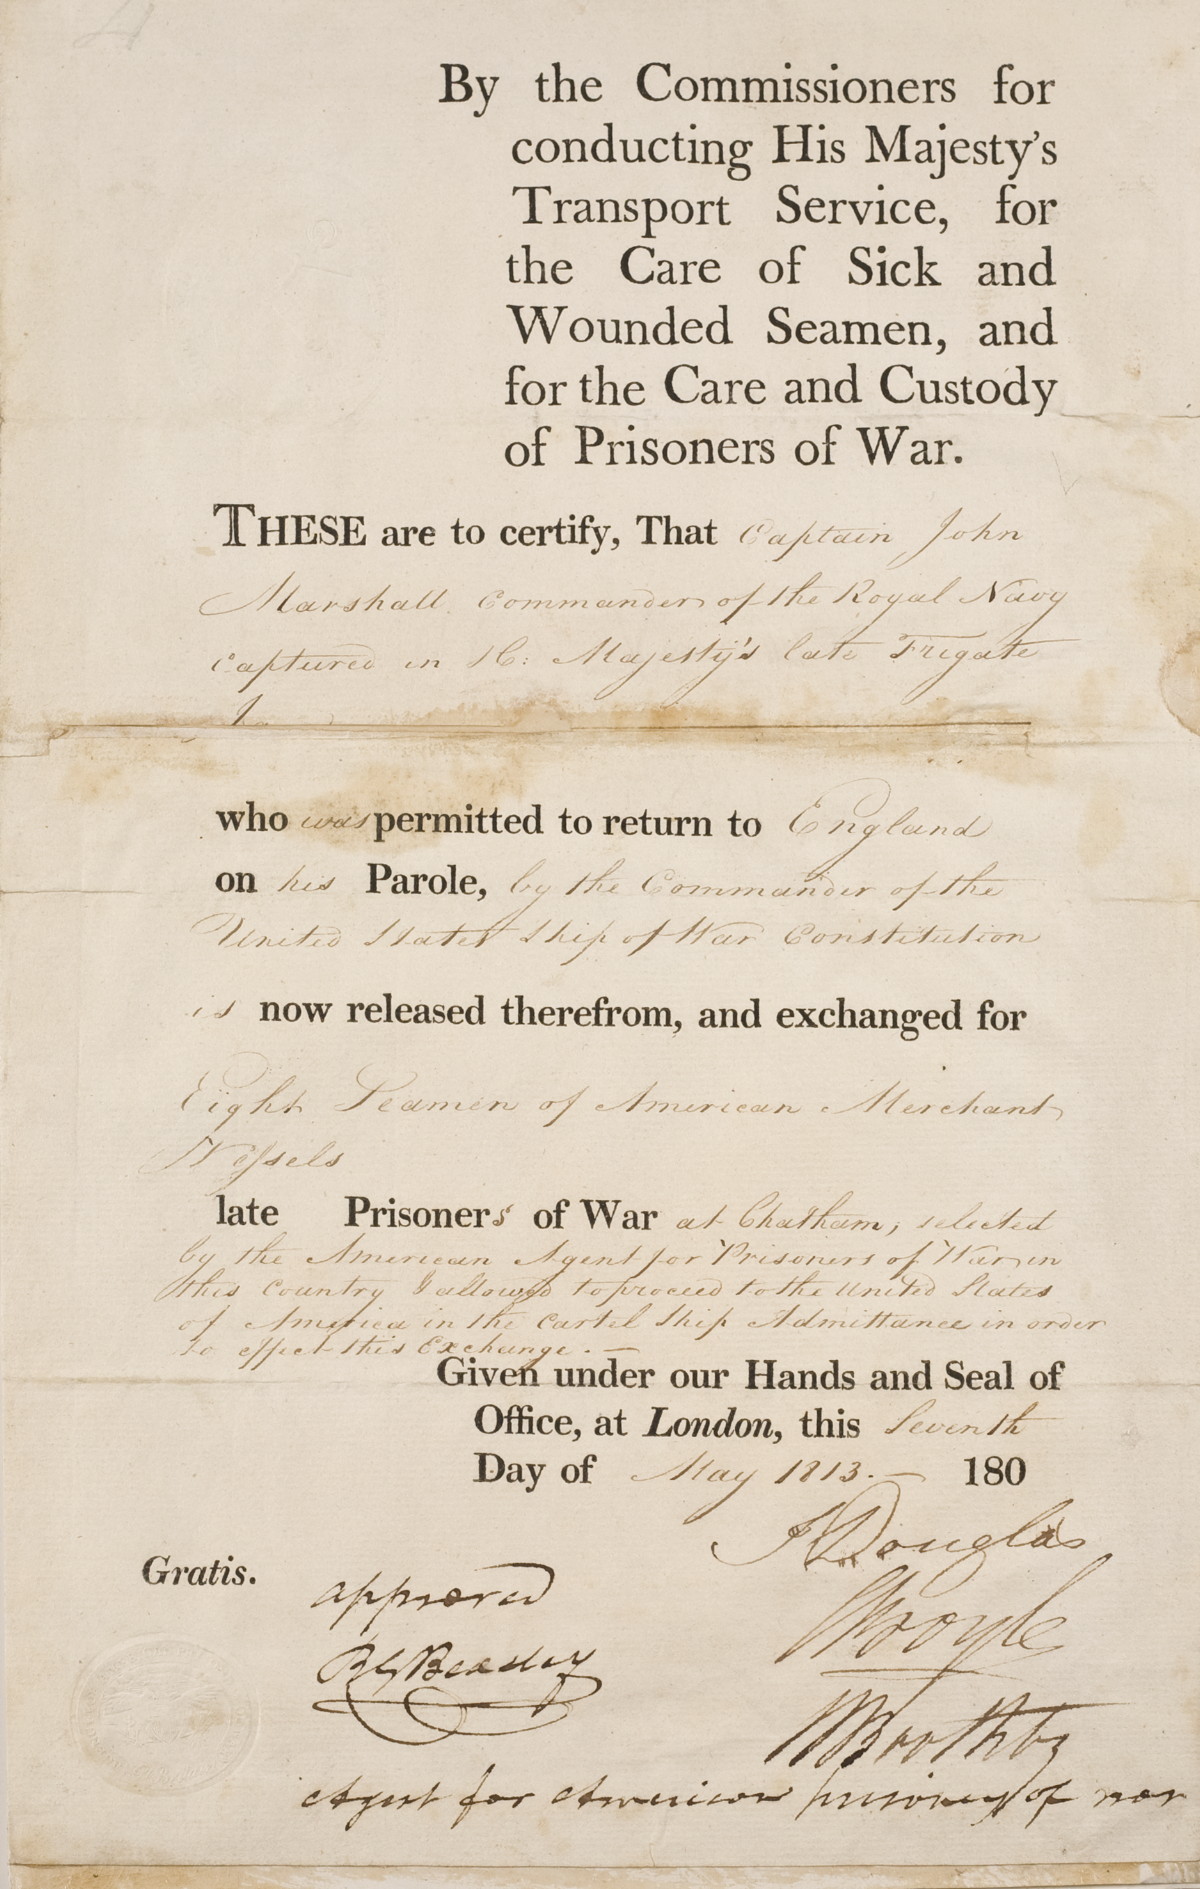 By the Commissioners for
conducting His Majesty's
Transport Service, for
the Care of Sick and
Wounded Seamen, and
for the Care and Custody
of Prisoners of War.
THESE are to certify, That Captain John
Marshall Commander of the Royal Navy
captured in H: Majesty's late Frigate
who was permitted to return to England
on his Parole, by the Commander of the
United States Ship of War Constitution
is now released therefrom, and exchanged for
Eight Seamen of American Merchant
Vessels
late Prisoners of War at Chatham, selected
by the American Agent for Prisoners of War in
this Country & allowed to proceed to the United States
of America in the Cartel Ship Admittance in order
to effect this Exchange. —
Given under our Hands and Seal of
Office, at London, this Seventh
Day of May 1813. — 180
J Douglas
Gratis.
approved
R G Beasley
Boyle
Boothby
Agent for American prisoners of war